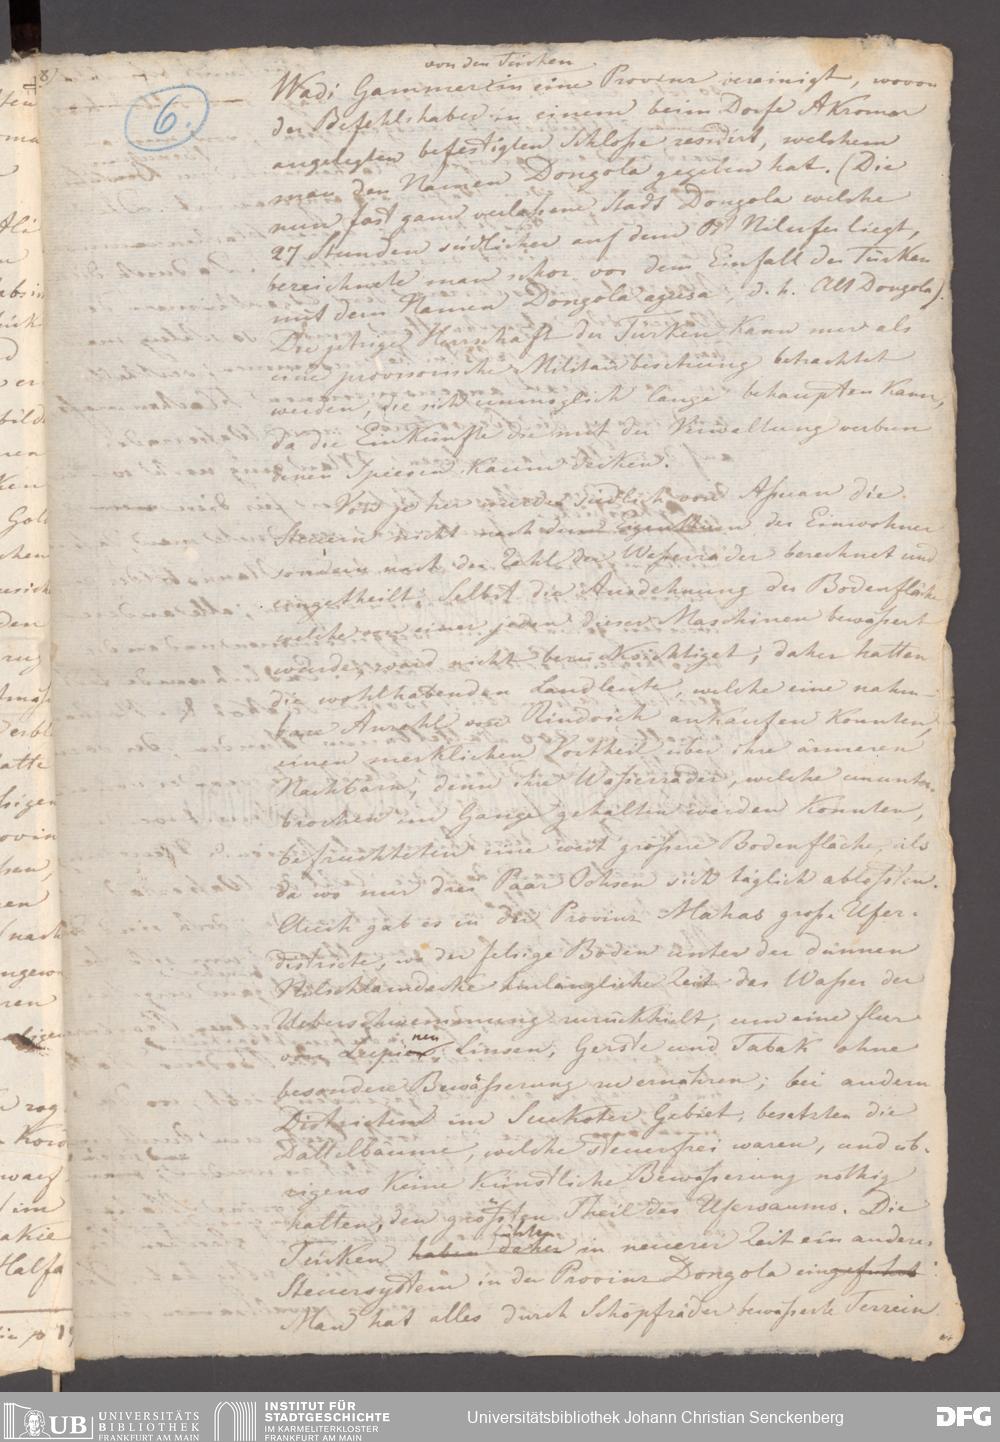 6.
von den Türken
Wadi Gammer in eine Provinz vereinigt, wovon
der Befehlshaber in einem beim Dorfe Akromar
angelegten befestigten Schloße residirt, welchem
man den Namen Dongola gegeben hat. (Die
nun fast ganz verlaßene Stadt Dongola welche
27 Stunden südlicher auf dem O Nilufer liegt,
bezeichnete man schon vor dem Einfall der Türken
mit dem Namen Dongola agusa, d. h. Alt Dongola).
Die jetzige Herrschaft der Türken kann nur als
eine provisorische Militairbesetzung betrachtet
werden, die sich unmöglich lange behaupten kann,
da die Einkünfte die mit der Verwaltung verbun
denen Spesen kaum decken.
Von jeher wurden südlich von Aßuan die
Steuern nicht nach dem Eigenthum der Einwohner
sondern nach der Zahl der Waßerräder berechnet und
eingetheilt; Selbst die Ausdehnung der Bodenfläche
welche von einer jeden dieser Maschinen bewäßert
wurde, ward nicht berücksichtiget; daher hatten
die wohlhabenden Landleute, welche eine nahm-
bare Anzahl von Rindvieh ankaufen konnten,
einen merklichen Vortheil über ihre ärmeren
Nachbarn, denn ihre Waßerräder, welche ununter-
brochen im Gange gehalten werden konnten,
befruchteten eine weit größere Bodenfläche, als
da wo nur drei Paar Ochsen sich täglich ablößten.
Auch gab es in der Provinz Mahas große Ufer-
districte, wo der felsige Boden unter der dünnen
Nilschlamdecke hinlängliche Zeit das Waßer der
Ueberschwemmung zurückhielt, um eine flur
von Lupinen, Linsen, Gerste und Tabak ohne
besondere Bewäßerung zu ernähren; bei andern
Districten im Suckoter Gebiet, besetzten die
Dattelbäume, welche steuerfrei waren, und üb-
rigens keine künstliche Bewäßerung nöthig
hatten, den größten Theil des Ufersaums. Die
Türken haben daher führten in neuerer Zeit ein anderes
Steuersystem in der Provinz Dongola eingeführt
Man hat alles durch Schöpfräder bewäßerte Terrein
UB UNIVERSITÄTS
BIBLIOTHEK
FRANKFURT AM MAIN
INSTITUT FÜR
STADTGESCHICHTE
IM KARMELITERKLOSTER
FRANKFURT AM MAIN
Universitätsbibliothek Johann Christian Senckenberg
DFG